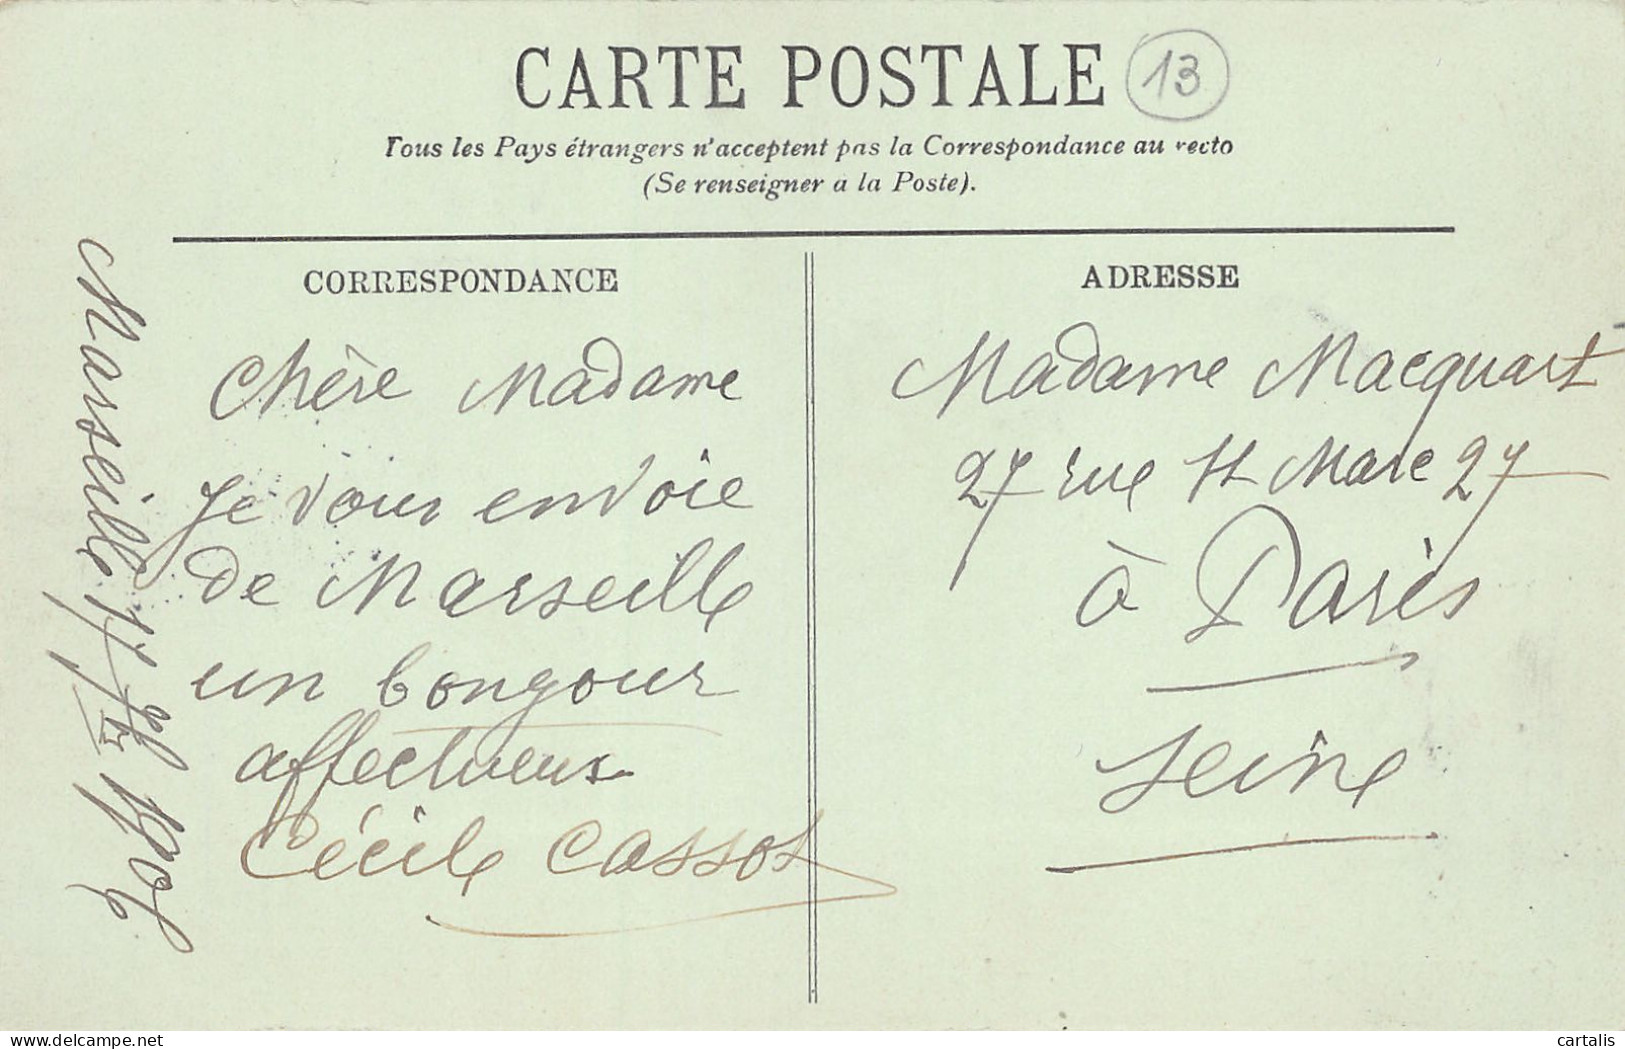 CARTE POSTALE 13
Tous les Pays étrangers n'acceptent pas la Correspondance au recto
(Se renseigner a la Poste).
CORRESPONDANCE
Chère Madame
Je vous envoie
de Marseille
un bongour
affectueux
Cécile Cassot
Marseille
ADRESSE
Madame Macquart
27 rue St Marc 27
à Paris
Seine
delcampe.net
cartalis